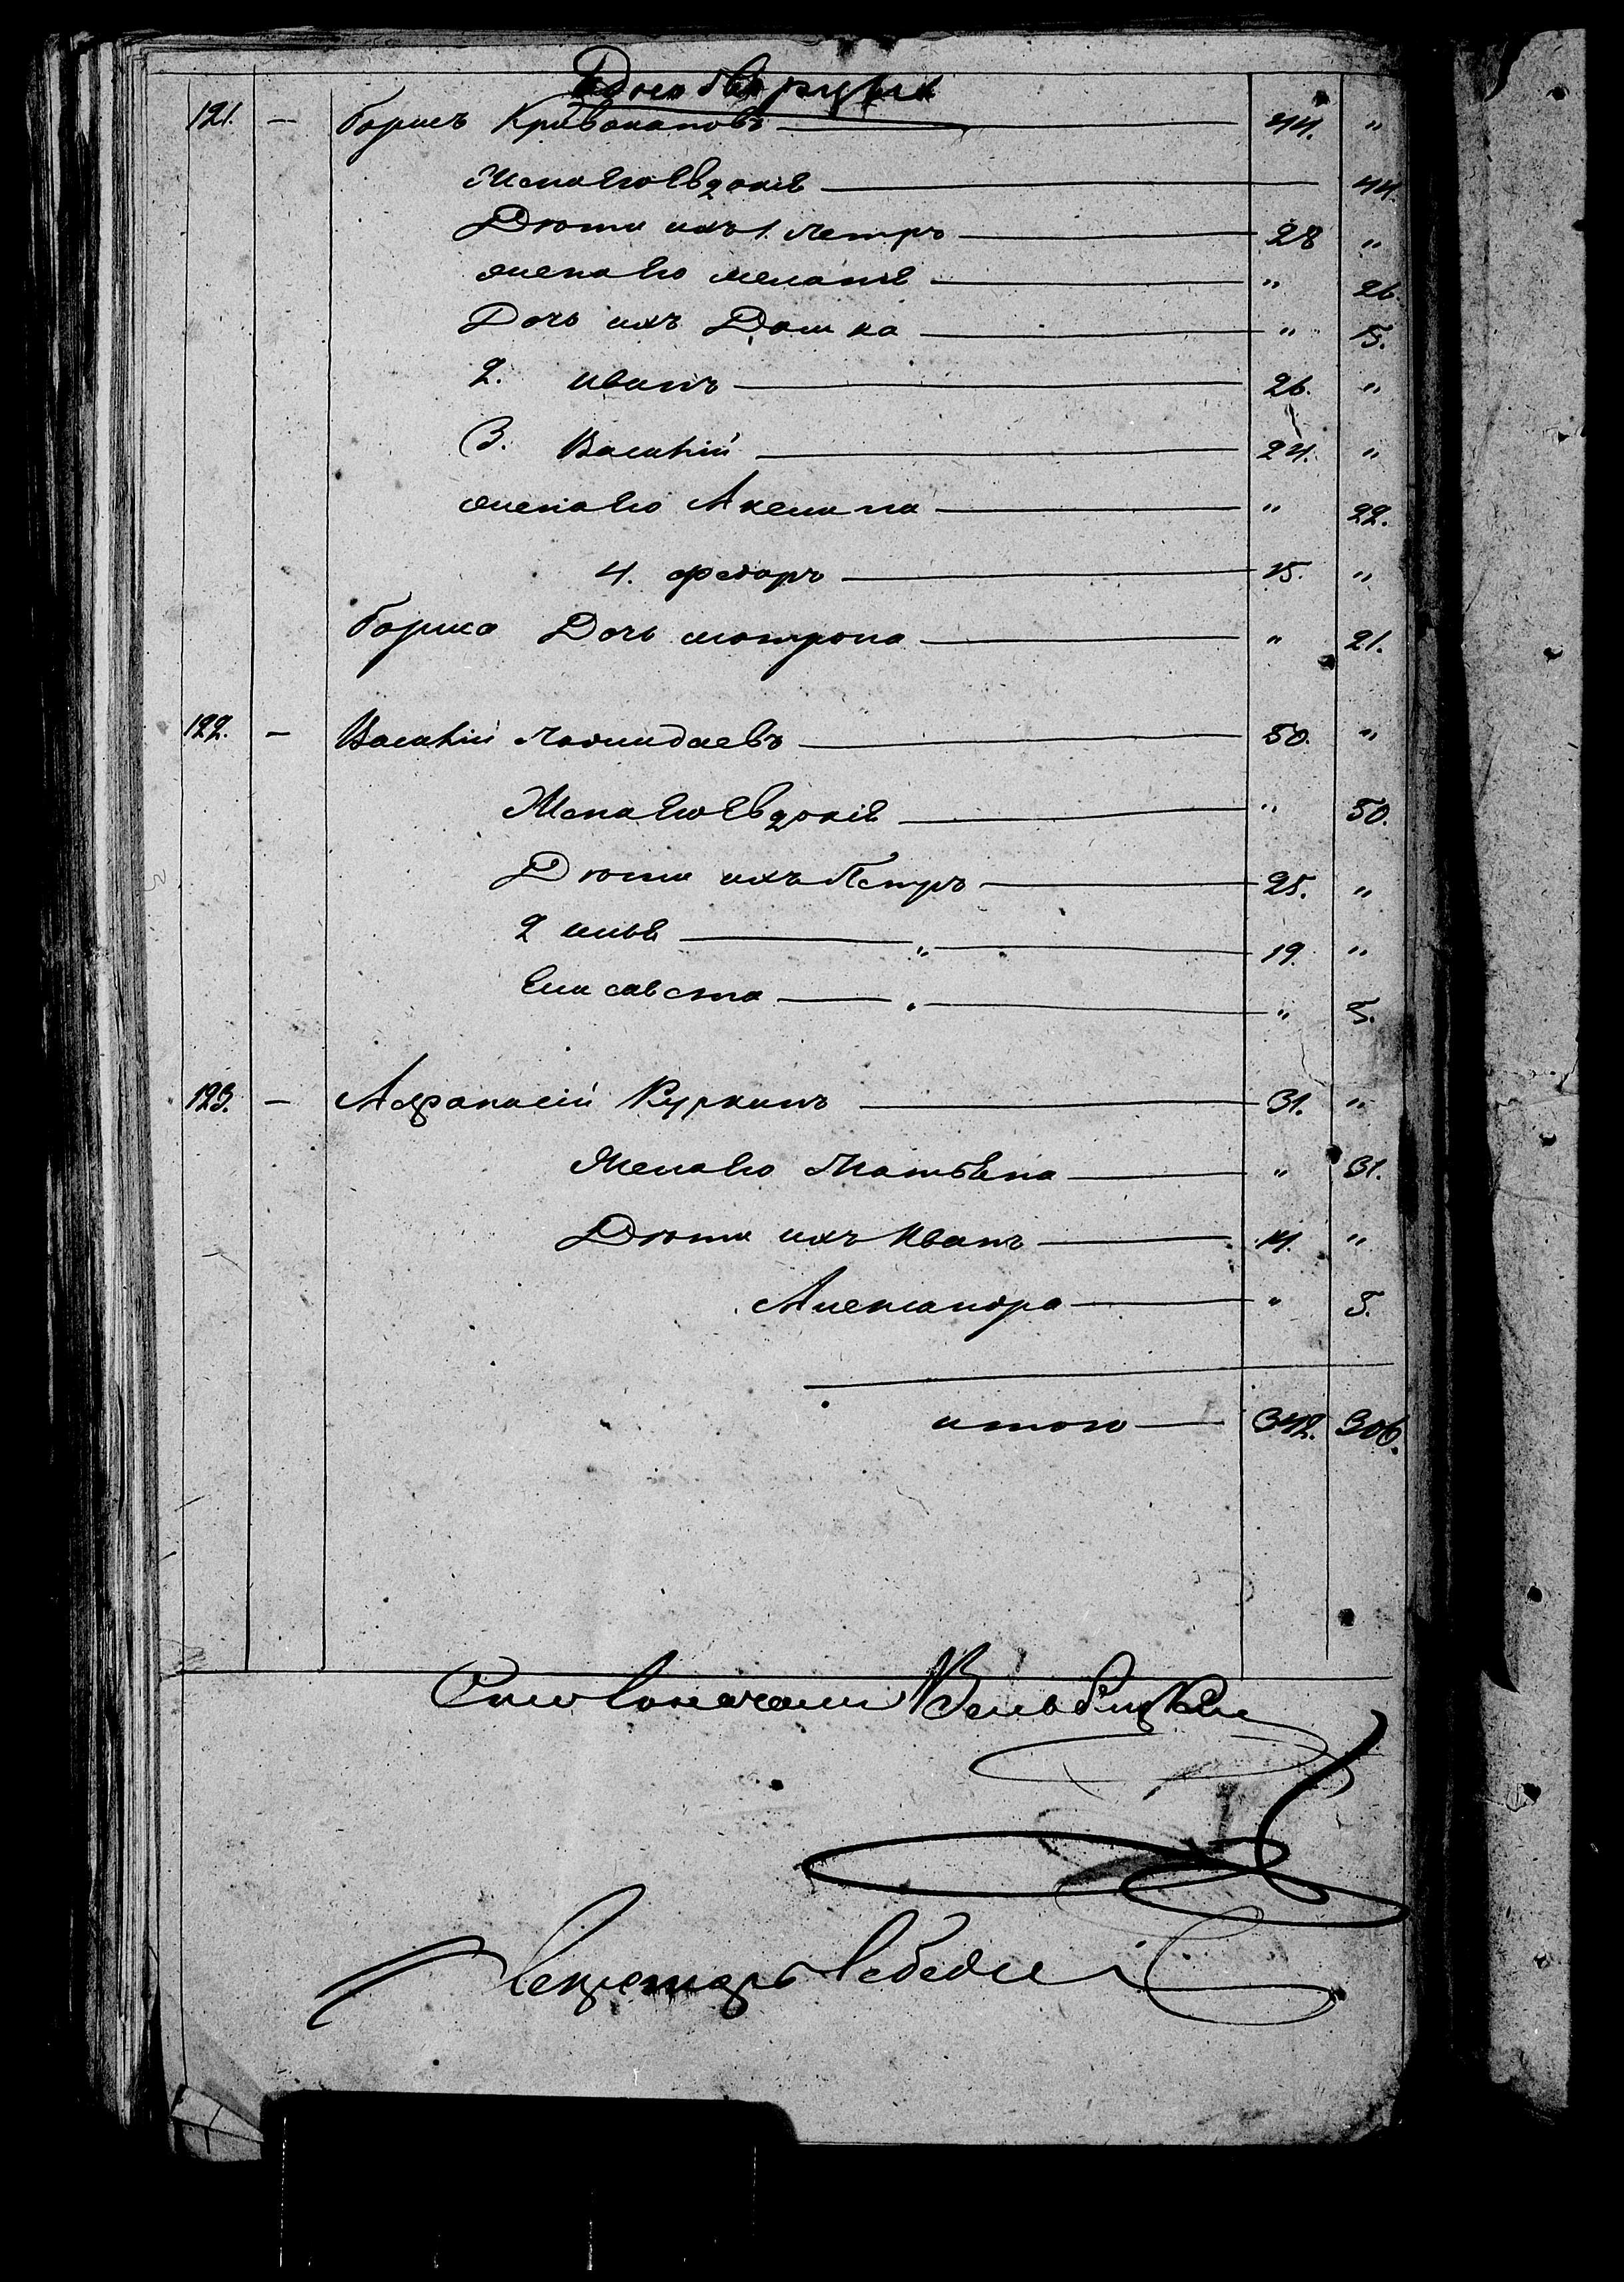 Однодворцы
121. — Борисъ Кривопаповъ — 44. „
Жена Его Евдокія — 44.
Дѣти ихъ 1. Петръ — 28 „
жена Его меланія — „ 26.
Дочь ихъ Дашка — „ 5.
2. иванъ — 26. „
3. Василій — 24. „
жена Его Аксинна — „ 22.
4. федоръ — 15. „
Бориса Дочь матрона — „ 21.
122. — Василій — 50. „
Жена Его Евдокія — „ 50.
Дѣти ихъ Петръ — 25. „
2 илья — „ — 19. „
Елисавета — „ 5.
123. — Афанасій Куркинъ — 31. „
Жена Его Матвѣна — „ 31.
Дѣти ихъ Иванъ — 14. „
Александра — „ 5.
итого — 342. 306.
Столоначальн
Секретарь Лебедев